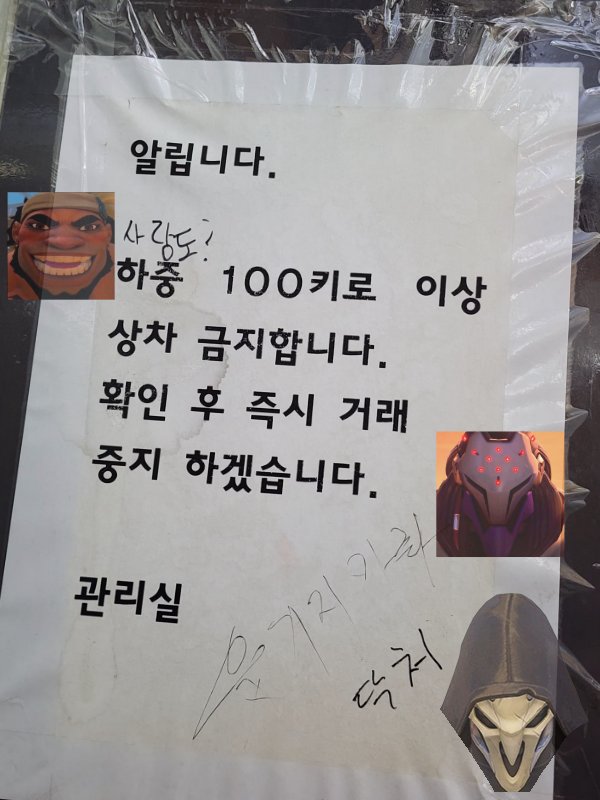 알립니다.
사람도?
하중 100키로 이상
상차 금지합니다.
확인 후 즉시 거래
중지 하겠습니다.
관리실
웃기지 키라
닥쳐